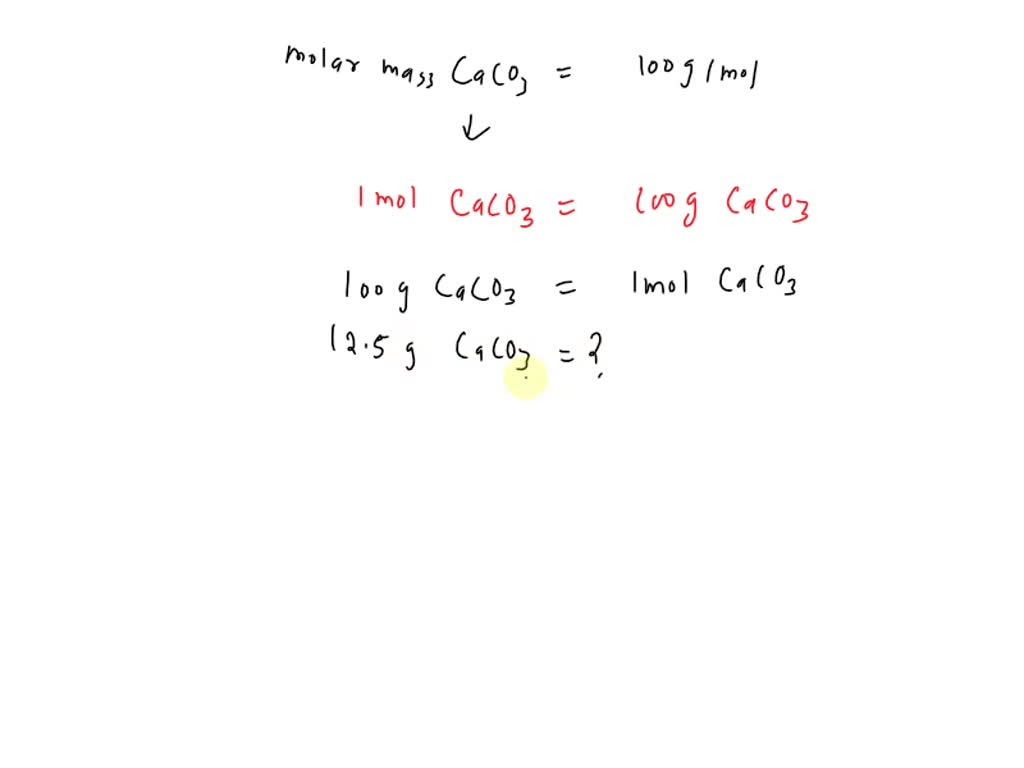 molar mass CaCO3 = 100g/mol
↓
1mol CaCO3 = 100g CaCO3
100g CaCO3 = 1mol CaCO3
12.5g CaCO3 = ?